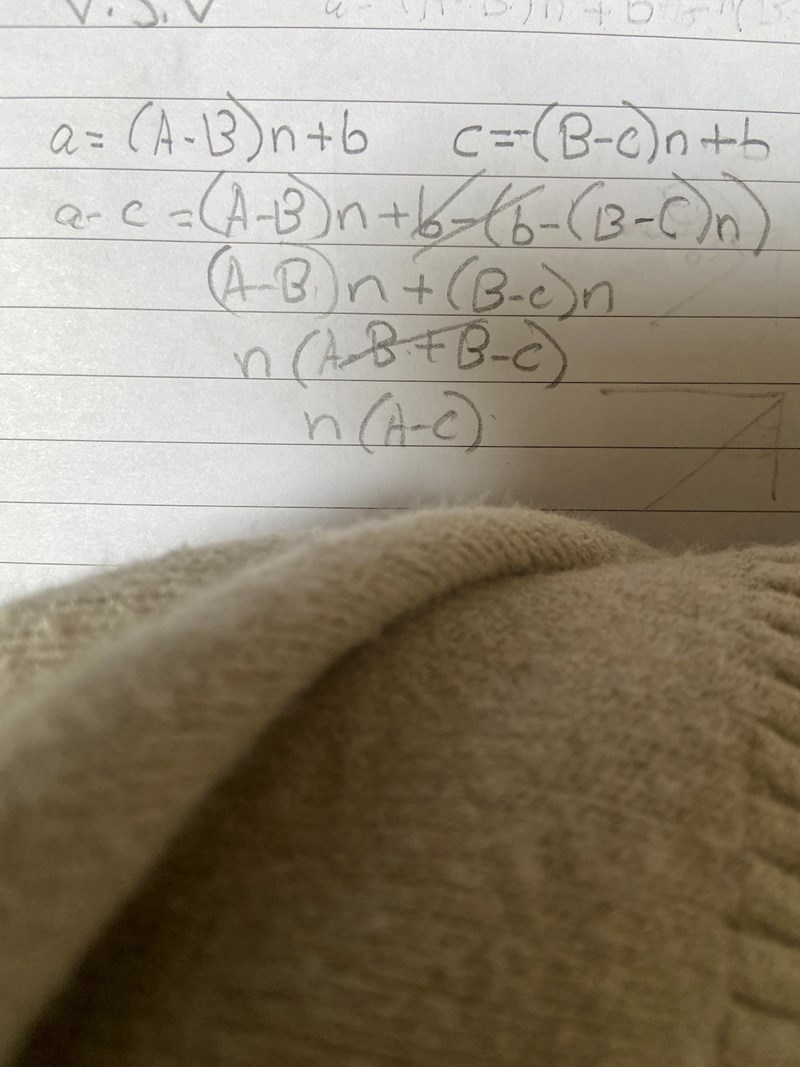 V.S.V
a=(A-B)n+b c=-(B-c)n+b
a-c=(A-B)n+b-(b-(B-C)n)
(A-B)n+(B-c)n
n(A-B+B-c)
n(A-C)